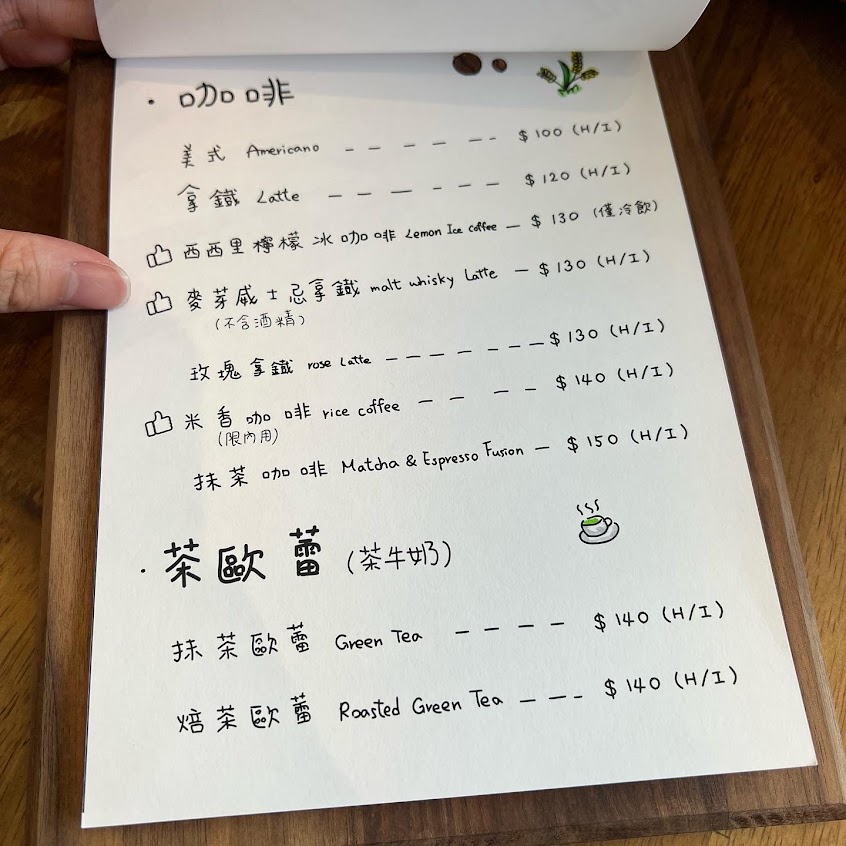 · 咖啡
美式 Americano - - - - -- $100 (H/I)
拿鐵 Latte - - - - - - $120 (H/I)
西西里檸檬冰咖啡 Lemon Ice coffee - $130 (僅冷飲)
麥芽威士忌拿鐵 malt whisky Latte - $130 (H/I)
(不含酒精)
玫瑰拿鐵 rose Latte - - - - - - - $130 (H/I)
米香咖啡 rice coffee - - - - $140 (H/I)
(限內用)
抹茶咖啡 Matcha & Espresso Fusion - $150 (H/I)
· 茶歐蕾 (茶牛奶)
抹茶歐蕾 Green Tea - - - - $140 (H/I)
焙茶歐蕾 Roasted Green Tea - - - $140 (H/I)